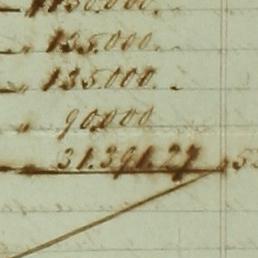 „ 135.000.
„ 135.000.
„ 90.000
„ 31.391.27